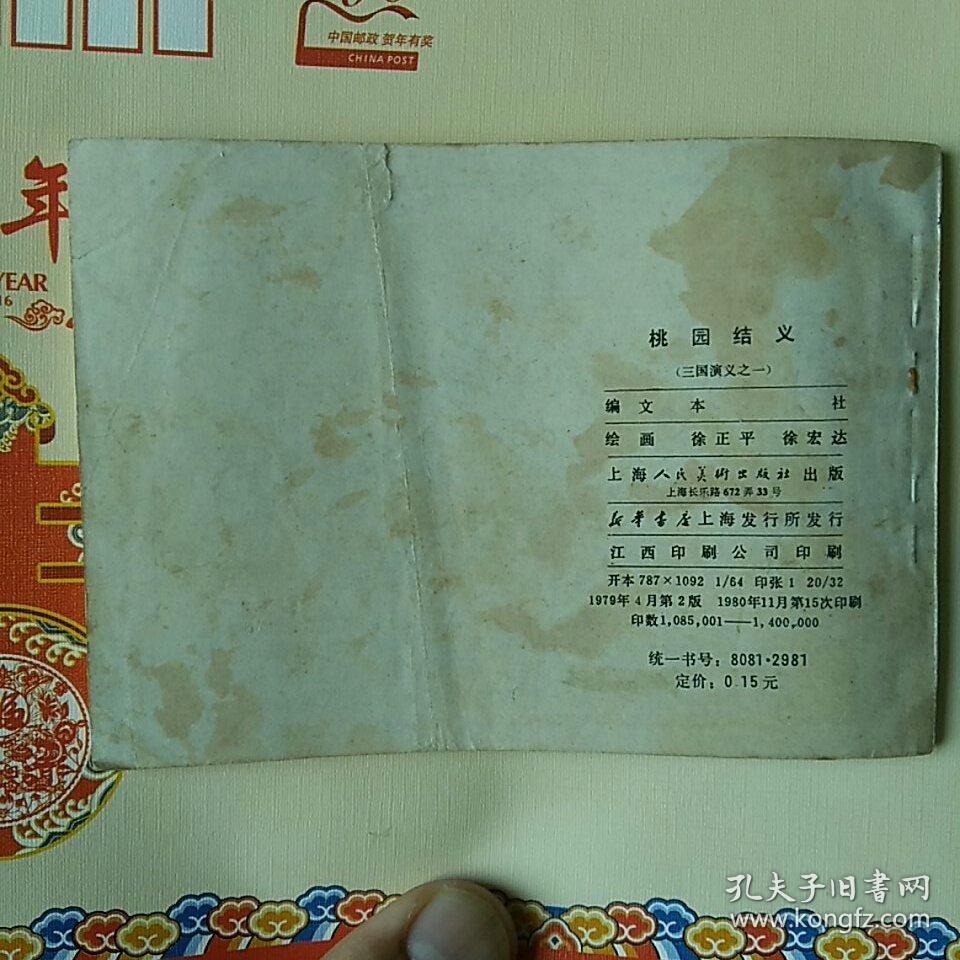 中国邮政 贺年有奖
CHINA POST
年
YEAR
16
桃园结义
(三国演义之一)
编文 本社
绘画 徐正平 徐宏达
上海人民美術出版社出版
上海长乐路672弄33号
新华书店上海发行所发行
江西印刷公司印刷
开本787×1092 1/64 印张1 20/32
1979年4月第2版 1980年11月第15次印刷
印数1,085,001——1,400,000
统一书号：8081·2981
定价：0.15元
福
孔夫子旧書网
www.kongfz.com